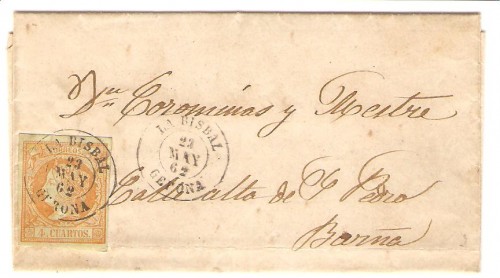 Dn Corominas y Mestre
LA BISBAL
23
MAY
62
GERONA
LA BISBAL
23
MAY
62
GERONA
4 CUARTOS.
Calle alta de S. Pedro
Barna